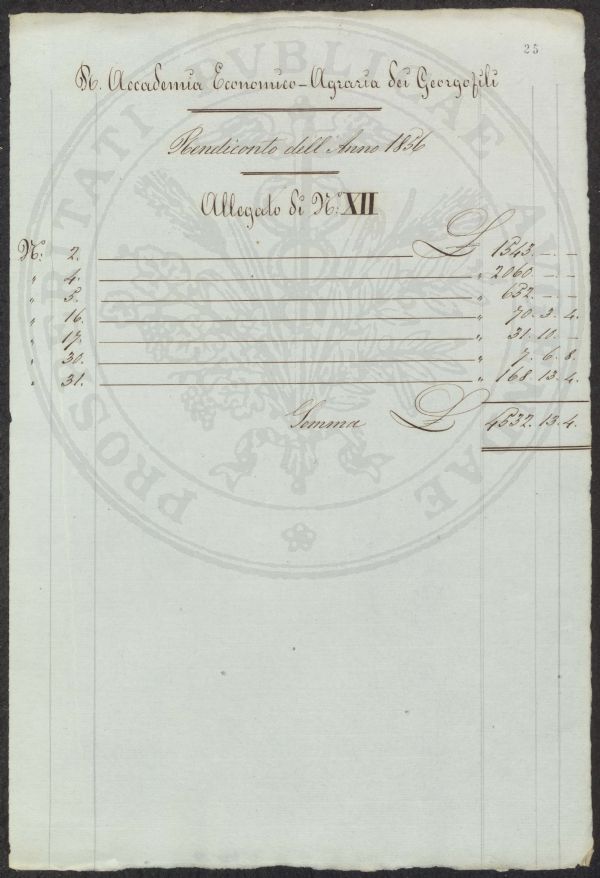 25
R. Accademia Economico-Agraria dei Georgofili
Rendiconto dell'Anno 1856
Allegato di N.º XII
N.º 2. £ 1543. — —
" 4. " 2060. — —
" 5. " 652. — —
" 16. " 70. 3. 4.
" 17. " 31. 10. —
" 30. " 7. 6. 8.
" 31. " 168. 13. 4.
Somma £ 4532. 13. 4.
PROSPERITATI PVBLICAE AVGENDAE